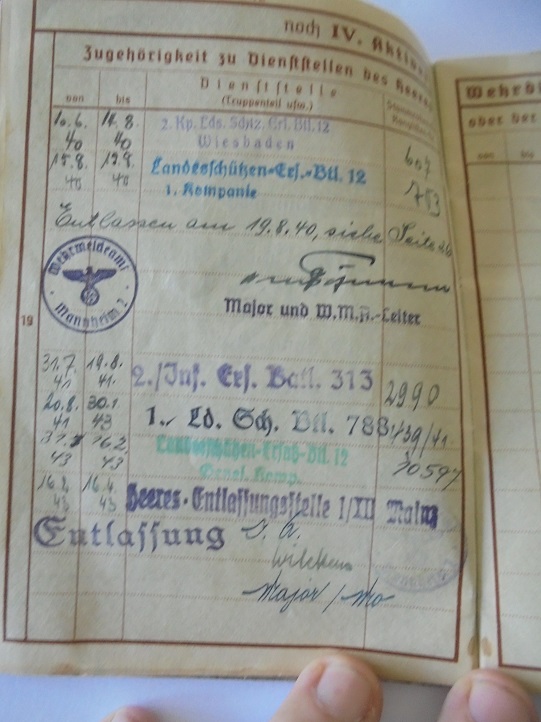 noch IV. Aktiver
Zugehörigkeit zu Dienststellen des Heeres
von bis Dienststelle (Truppenteil usw.)
10.6. 40 14.8. 40 2. Kp. Lds. Schtz. Ers. Btl. 12 Wiesbaden 607
15.8. 40 19.8. 40 Landesschützen-Ers.-Btl. 12 1. Kompanie 753
Entlassen am 19.8.40, siehe Seite
Wehrmeldeamt Mannheim 2
Major und W.M.A.-Leiter
19
31.7. 41 19.8. 41. 2./Inf. Ers. Batl. 313 2990
20.8. 41 30.1. 43 1./ Ld. Sch. Btl. 788 1/39/41
43 16.2. 43 Landesschützen-Ersatz-Btl. 12 Genes. Komp. 20597
16.2. 43 16.4. 43 Heeres-Entlassungsstelle 1/XII Mainz
Entlassung
Major
Wehrdi
oder der
von bis